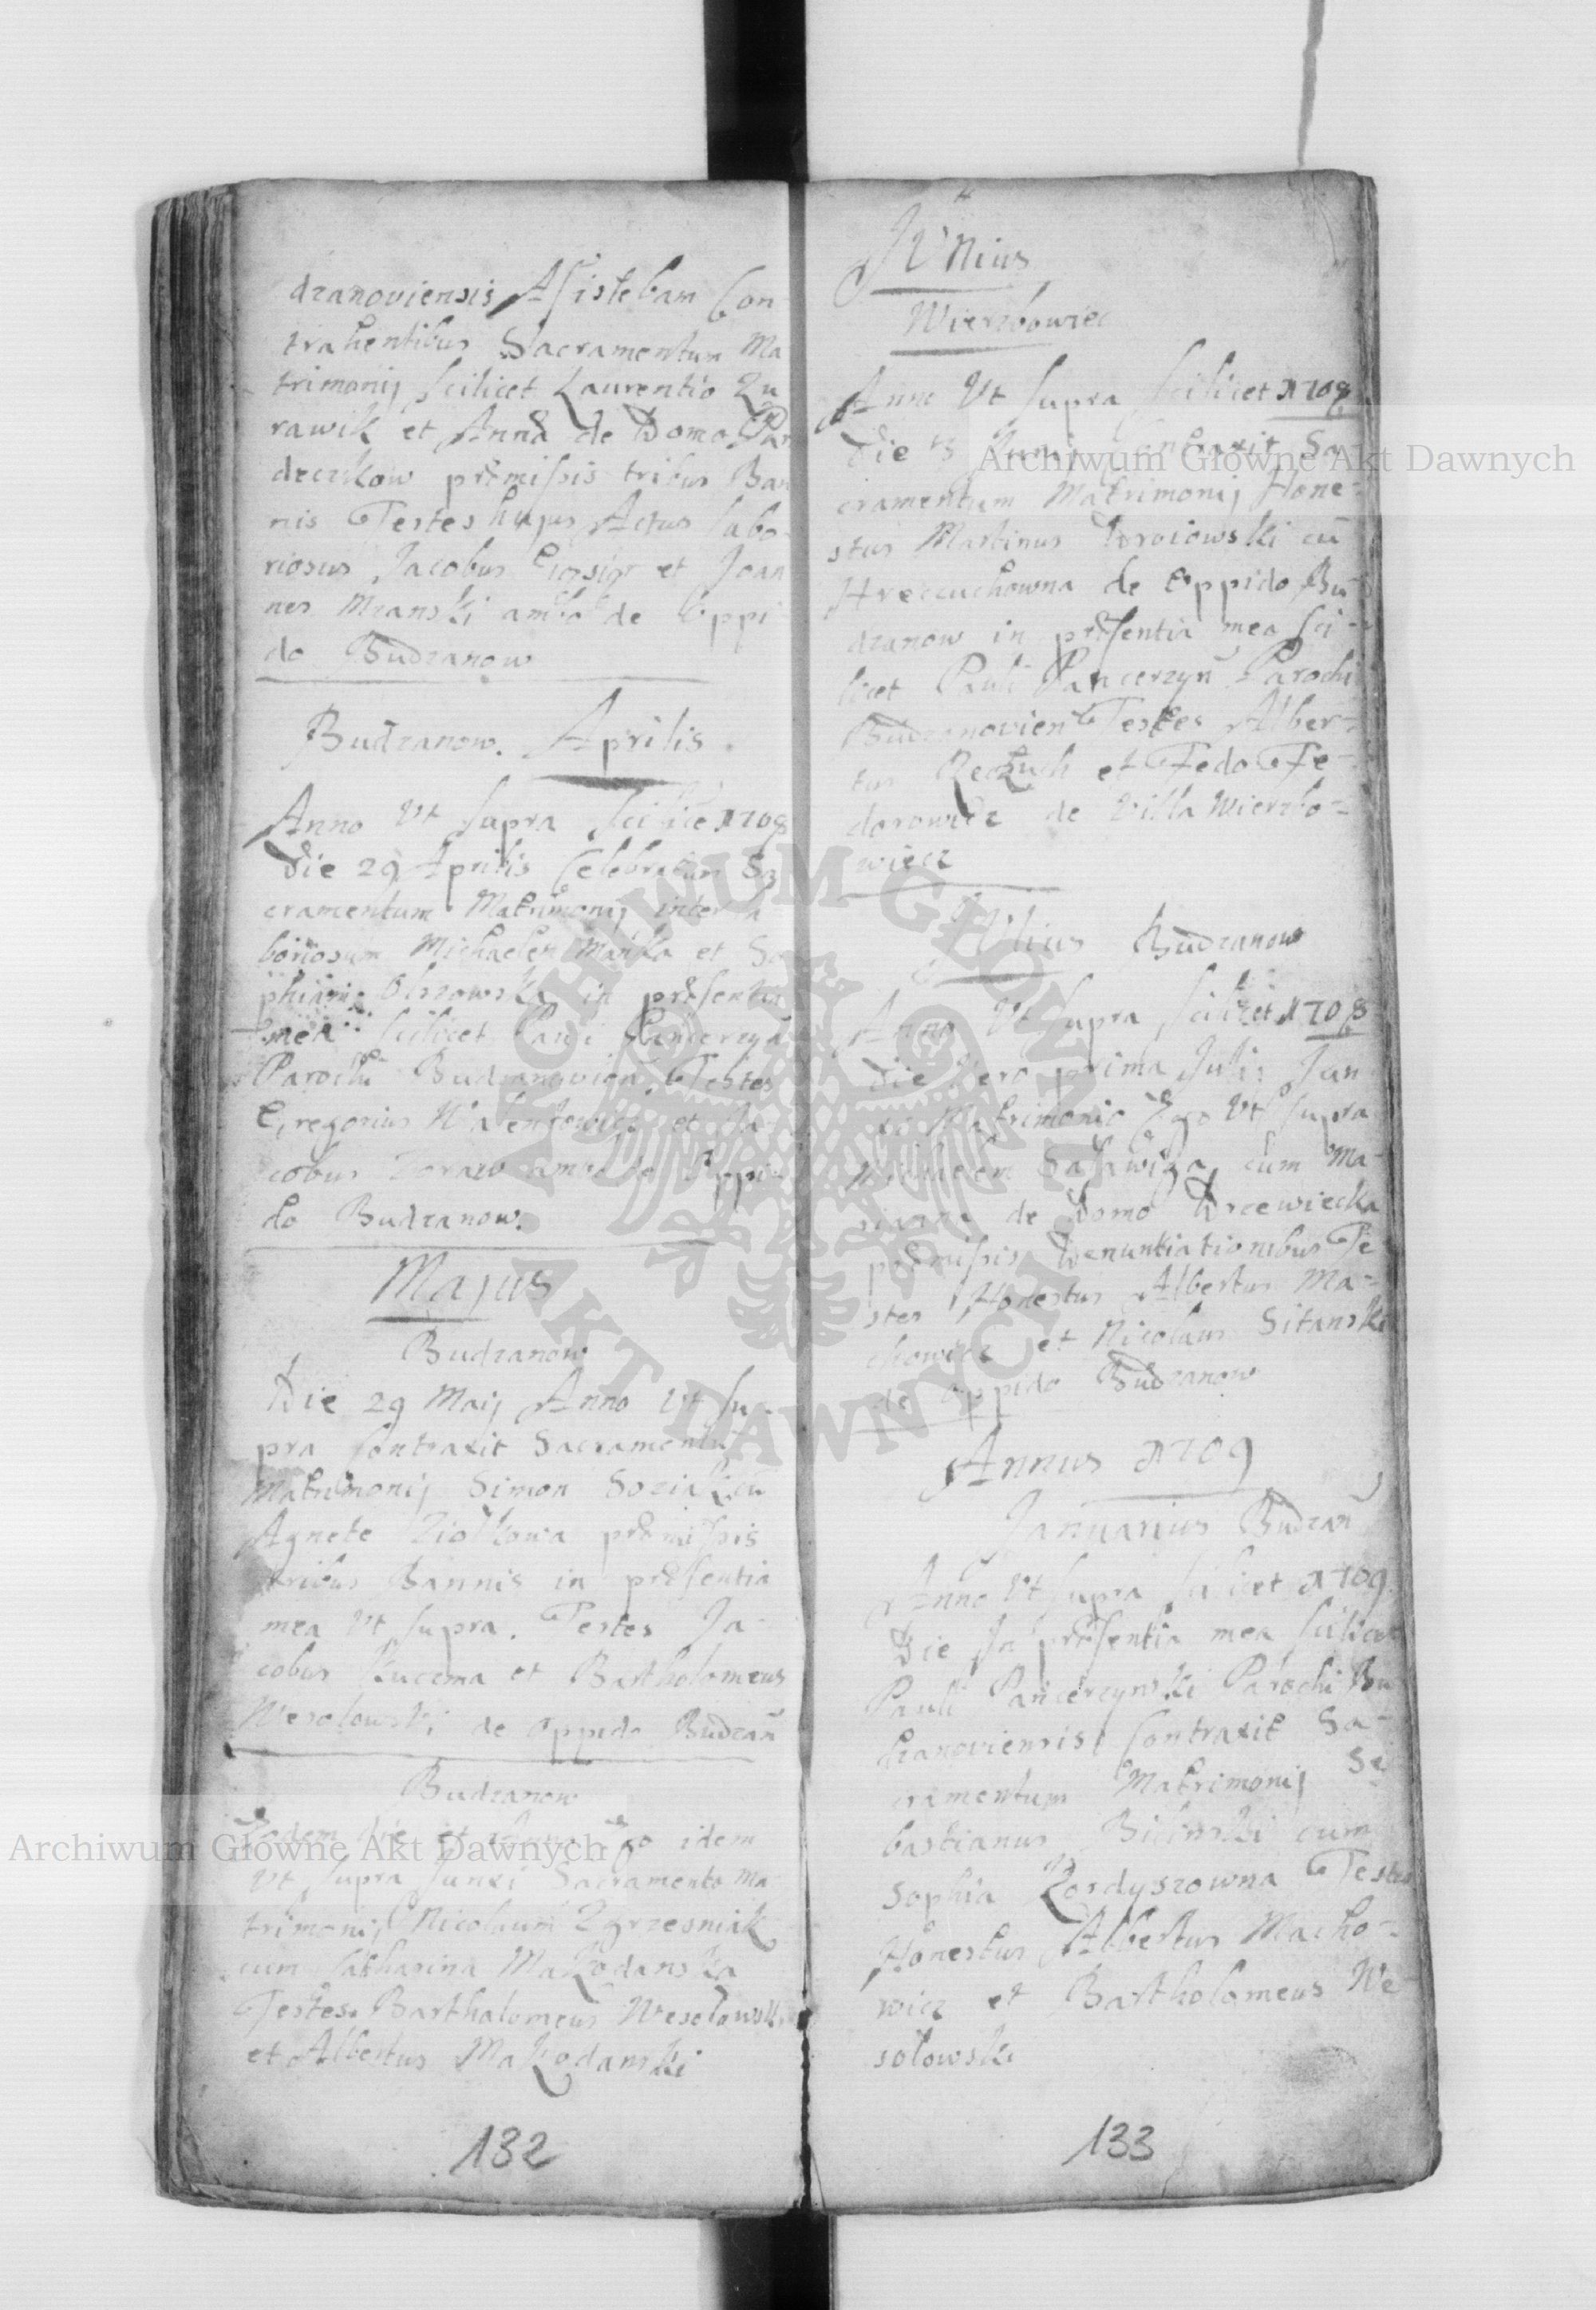 dzanoviensis Assistebam Con
trahentibus Sacramentum Ma
trimonij scilicet Laurentio Zu
rawik et Anna de Domo
deczkow præmissis tribus Ban
nis Testes hujus Actus labo
riosus Jacobus et Joan
nes Mranski ambo de Oppi
do Budzanow
Budzanow. Aprilis
Anno Ut supra scilicē 1708
Die 29 Aprilis Celebratum Sa
cramentum Matrimonij inter la
boriosum Michaelem Manka et So
phiam Olszowska in præsentia
mea scilicet Pauli Pancerzyn̄
Parochi Budzanovien Testes
Gregorius Walentowicz et Ja
cobus Zoraw ambo de Oppi
do Budzanow.
Majus
Budzanow
Die 29 Maij Anno Ut su
pra Contraxit Sacramentū
Matrimonij Simon Soziak cū
Agnete Ziołkowa præmissis
tribus Bannis in præsentia
mea Ut supra. Testes Ja
cobus Kuczma et Bartholomeus
Wesolowski de Oppido Budzan̄
Budzanow
Eodem die et Anno Ego idem
Ut supra Junxi Sacramento Ma
trimonij Nicolaum Zgrzesniak
cum Catharina Makodanska
Testes Barthalomeus Wesolowski
et Albertus Makodanski
132
JUNius
Wierzbowiec
Anno Ut supra scilicet 1708
Die 3 Junij Contraxit Sa
cramentum Matrimonij Hone-
stus Martinus cū
Hreczuchowna de Oppido Bu-
dzanow in præsentia mea sci-
licet Pauli Pancerzyn̄ Parochi
Budzanovien Testes Alber-
tus et Fedo Fe-
dorowicz de Villa Wierzbo-
wiecz
JUlius Budzanow
Anno Ut supra scilicet 1708
Die Vero prima Julij Jun
xi Matrimonio Ego Ut supra
Michaelem cum Ma-
rianna de Domo Drzewiecka
præmissis Denuntiationibus Te
stes Honestus Albertus Ma-
chowicz et Nicolaus Sitanski
de Oppido Budzanow
Annus 1709
Januarius Budzan̄
Anno Ut supra scilicet 1709
Die In præsentia mea scilicet
Pauli Pancerzynski Parochi Bu
dzanoviensis Contraxit Sa-
cramentum Matrimonij Se
bastianus Bilinski cum
Sophia Kordyszowna Testes
Honestus Albertus Macho-
wicz et Bartholomeus We
solowski
133
Archiwum Główne Akt Dawnych
Archiwum Główne Akt Dawnych
ARCHIWUM GŁÓWNE AKT DAWNYCH